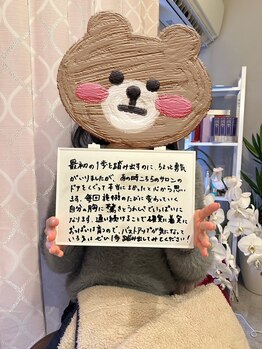 最初の1歩を踏み出すのに、ちょっと勇気
がいりましたが、あの時こちらのサロンの
ドアをくぐって本当によかったと心から思い
ます。毎回施術のたびに変わっていく
自分の胸に驚きとうれしさでいっぱいに
なります。通い続けることで確実に着実に
おっぱいは育つので、バストアップが気になって
いる方はぜひ1歩踏み出してみてください!